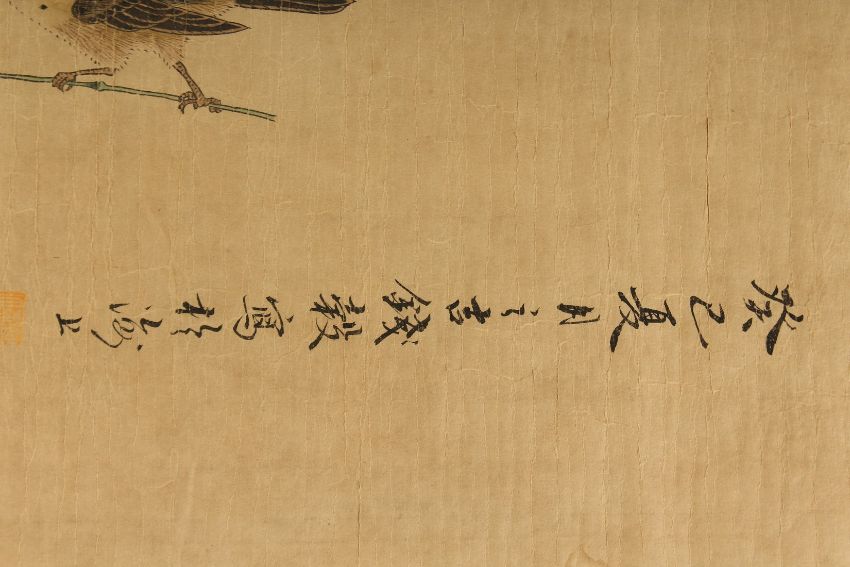 癸巳夏月之吉錢穀寫於海上